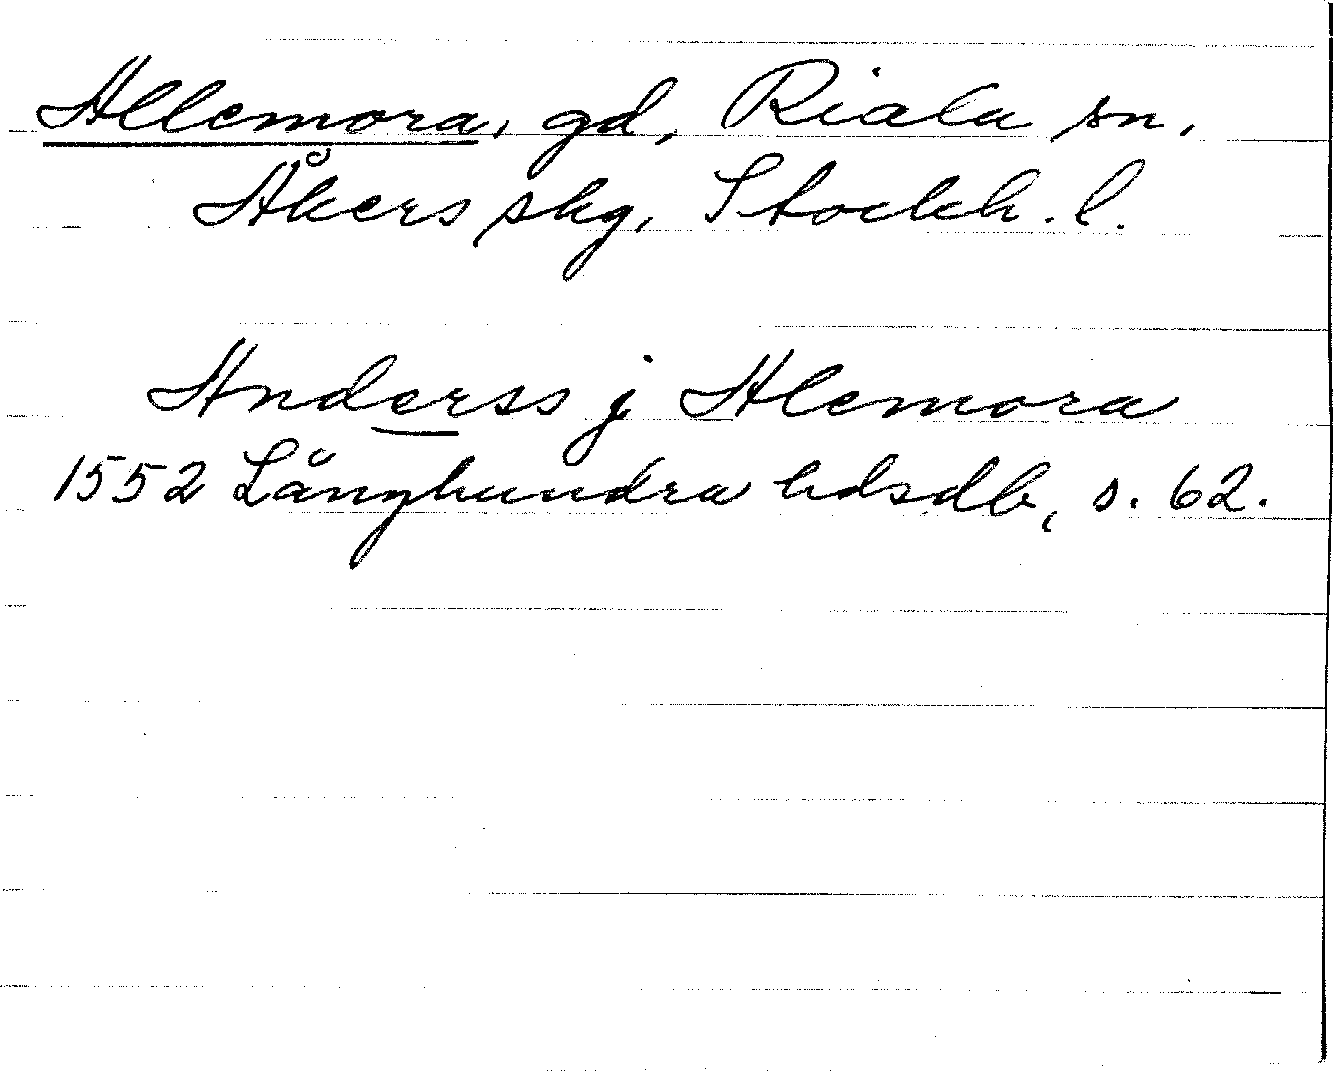 Allemora, gd, Riala sn.
Åkers skg, Stockh. l.
Anderss j Alemora
1552 Långhundra hdsdb, s. 62.